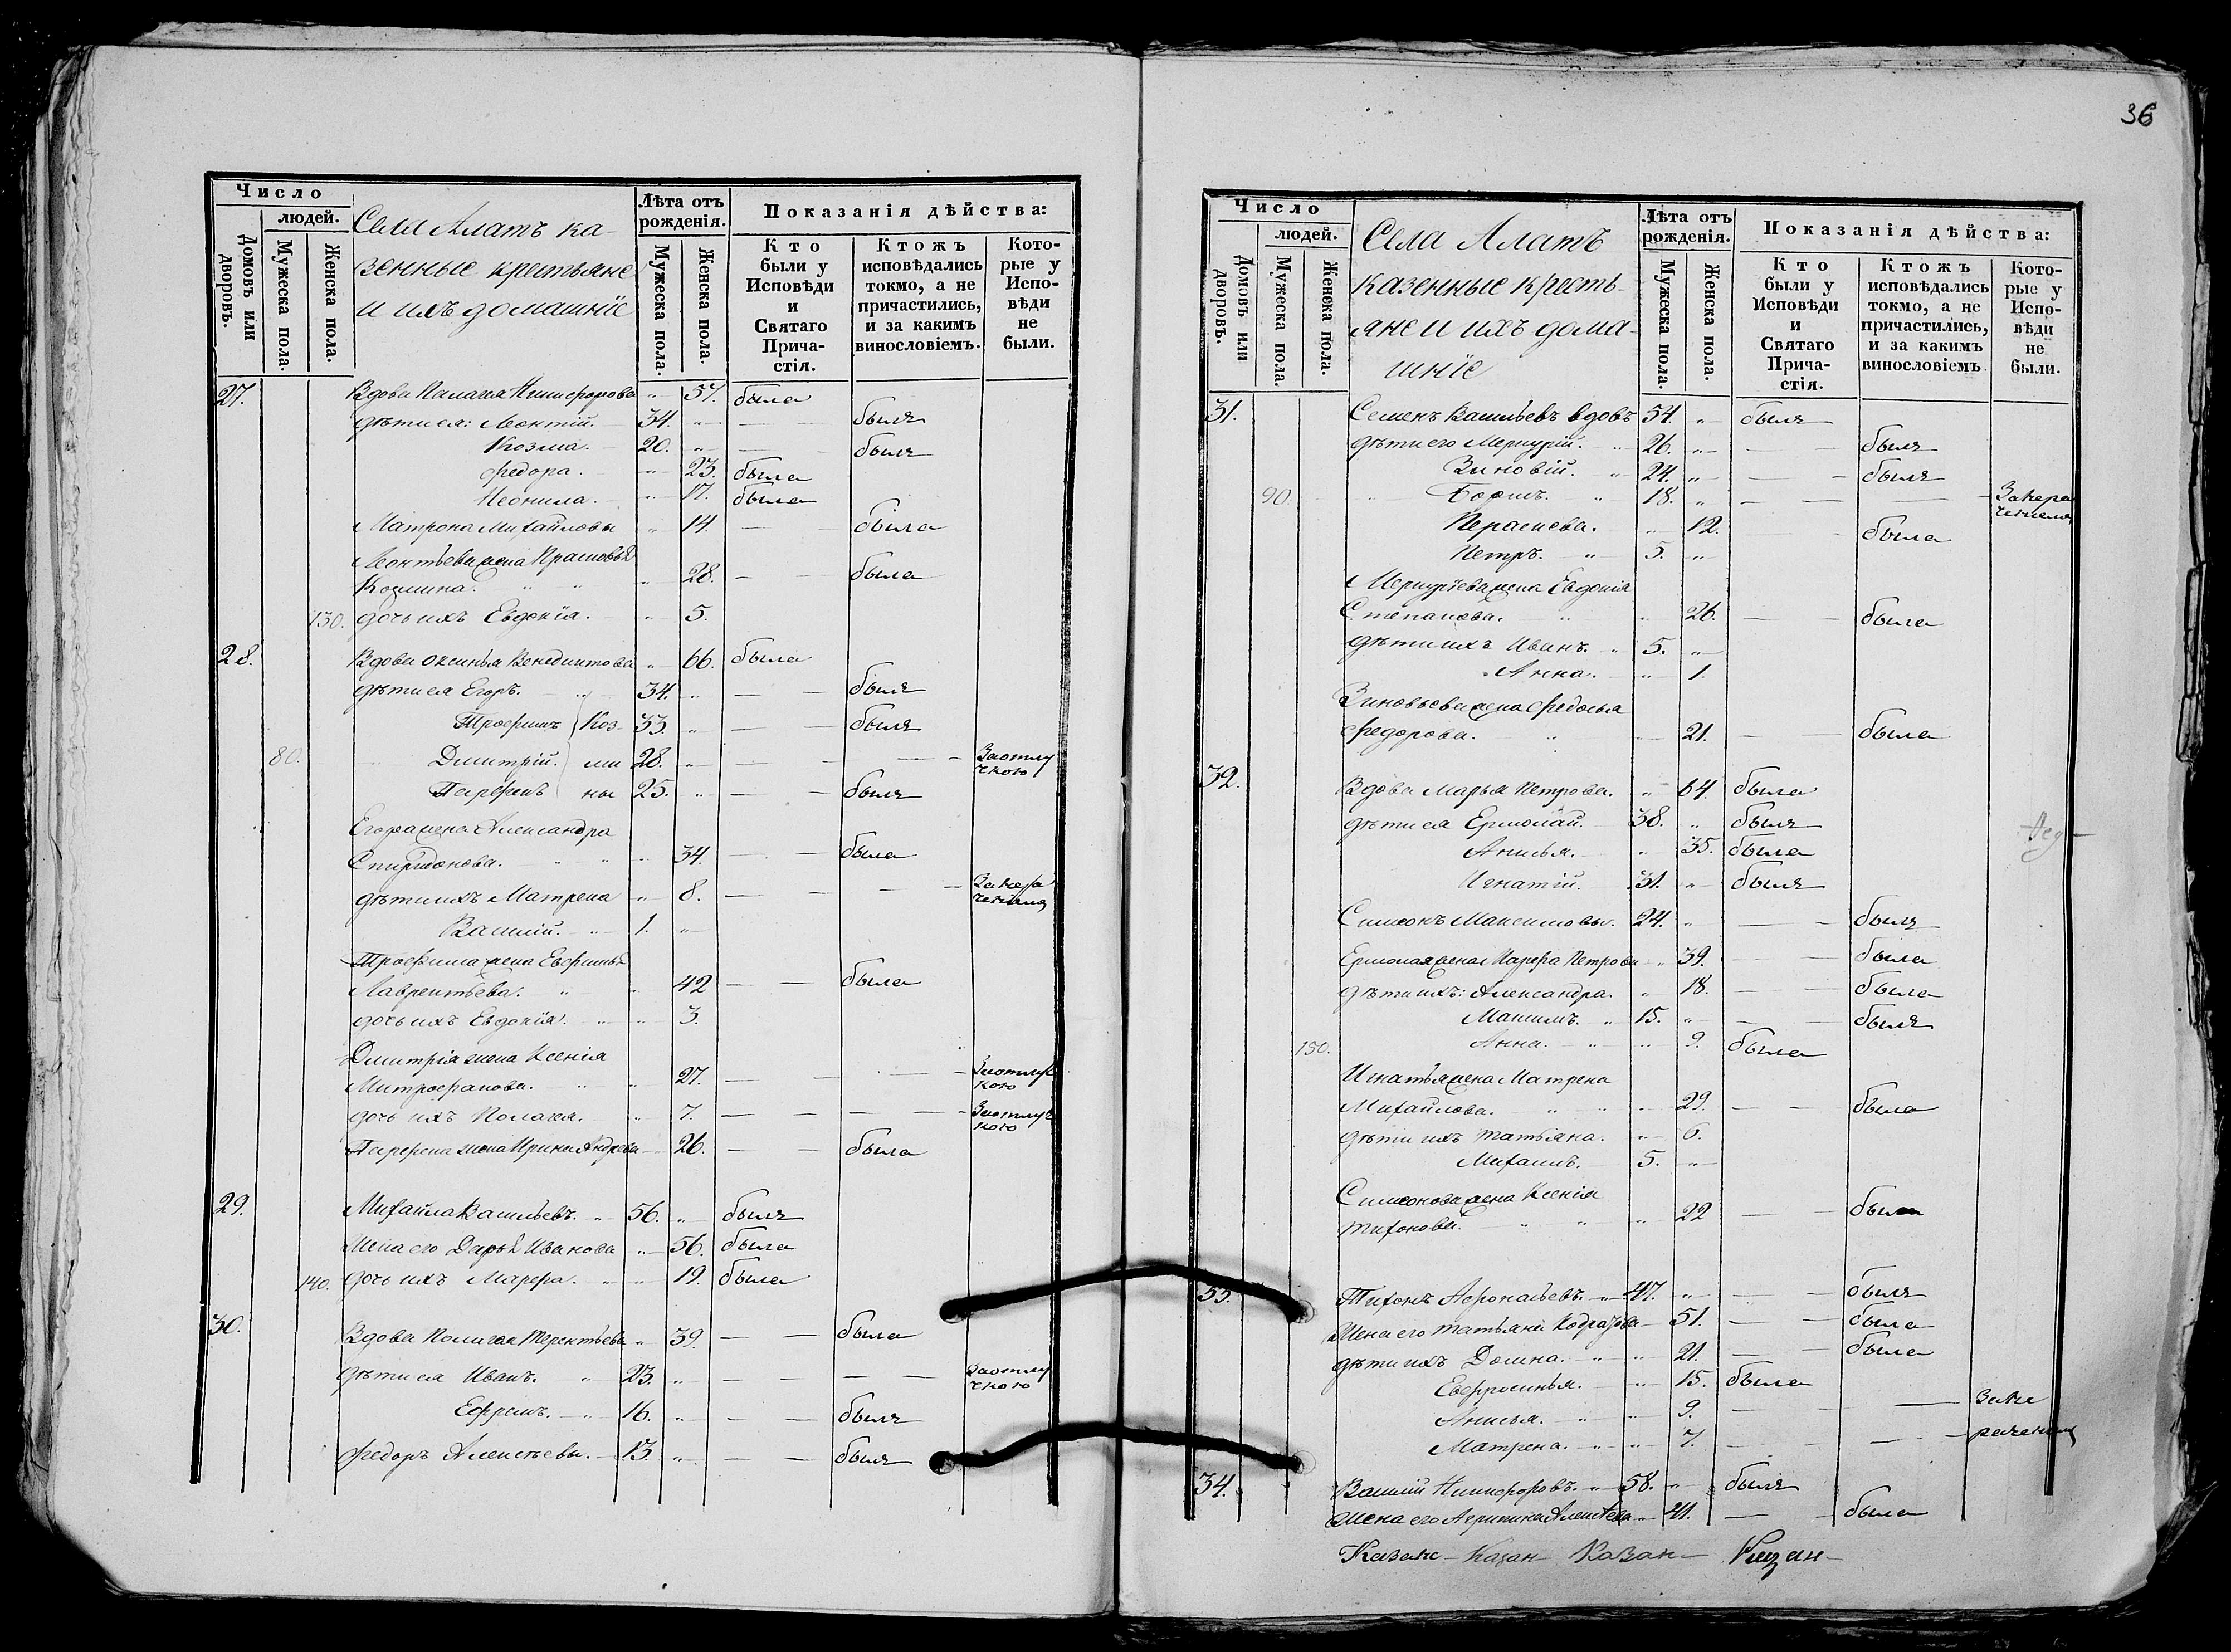 Число
людей.
Домовъ или дворовъ.
Мужеска пола.
Женска пола.
Села Алатъ ка-
зенные крестьяне
и ихъ домашніе
Лѣта отъ рожденія.
Мужеска пола.
Женска пола.
Показанія дѣйства:
Кто были у Исповѣди и Святаго Прича-стія.
Ктожъ исповѣдались токмо, а не причастились, и за какимъ винословіемъ.
Кото-рые у Испо-вѣди не были.
27. Вдова Палагея Никифорова „ 57. была
дѣти ея: Леонтій. 34. „ — былъ
Козма. 20. „ — былъ
Федора. „ 23. была
Неонила. „ 17. была
Матрона Михайловы „ 14 — была
Леонтьева жена Прасковья
Козмина. „ 28. — была
130. дочь ихъ Евдокія. „ 5.
28. Вдова Оксинья Венедиктова „ 66. была
дѣти ея Егоръ. 34. „ — былъ
Трофимъ Коз- 33. „ — былъ
80. Дмитрій. ми 28. „ — — Заотлу
чкою
Парфенъ ны 25. „ — былъ
Егора жена Александра
Спиридонова. „ 34. — была
дѣти ихъ Матрена „ 8. — — Замало
Василій. 1. „
Трофима жена Евфимья
Лаврентьева. „ 42 — была
дочь ихъ Евдокія. „ 3.
Дмитрія жена Ксенія
Митрофанова. „ 27. — — Заотлуч
кою
дочь ихъ Полагея. „ 7. — — Заотлуч
кою
Парфена жена Ирина Андрева 26. — была
29. Михайла Васильевъ. 56. „ былъ
Жена его Дарья Иванова „ 56. была
140. дочь ихъ Марфа. „ 19. была
30. Вдова Полагея Терентьева „ 39. — была
дѣти ея Иванъ. 23. „ — — Заотлу
чкою
Ефремъ. 16. „ — былъ
Федоръ Алексѣевы. 13. „ — былъ
36
Число
людей.
Домовъ или дворовъ.
Мужеска пола.
Женска пола.
Села Алатъ
казенные кресть-
яне и ихъ дома-
шніе
Лѣта отъ рожденія.
Мужеска пола.
Женска пола.
Показанія дѣйства:
Кто были у Исповѣди и Святаго Прича-стія.
Ктожъ исповѣдались токмо, а не причастились, и за какимъ винословіемъ.
Кото-рые у Испо-вѣди не были.
31. Семенъ Васильевъ вдовъ 54. „ былъ
дѣти его Меркурій. 26. „ — былъ
Зиновій. 24. „ — былъ
90. Борисъ. 18. „ — —
12. — была
Петръ. 5. „
Меркуріева жена Евдокія
Степанова. „ 26. — была
дѣти ихъ Иванъ. 5. „
Анна. „ 1.
Зиновьева жена Федосья
Федорова. „ 21. — была
32. Вдова Марья Петрова. „ 64. была
дѣти ея Ермолай. 38. „ былъ
Анисья. „ 35. была
Игнатій. 31. „ былъ
Симеонъ Максимовы. 24. „ — былъ
Ермолая жена Марфа Петрова „ 39. — была
дѣти ихъ: Александра. „ 18. — была
Максимъ. 15. „ — былъ
150. Анна. „ 9. была
Игнатья жена Матрена
Михайлова. „ 29. — была
дѣти ихъ Татьяна. „ 6.
Михаилъ. 5. „
Симеонова жена Ксенія
Тихонова. „ 22 — была
33. Тихонъ Афонасьевъ. 47. „ — былъ
Жена его Татьяна Кодратова 51. — была
дѣти ихъ Домна. „ 21. — была
Евфросинья. „ 15. была
Анисья. „ 9. — —
Матрена. „ 7. — —
34. Василій Никифоровъ. 58. „ былъ
Жена его Агрипина Алексѣева 41. — была
Казанс- Казан- Казан- Казан-